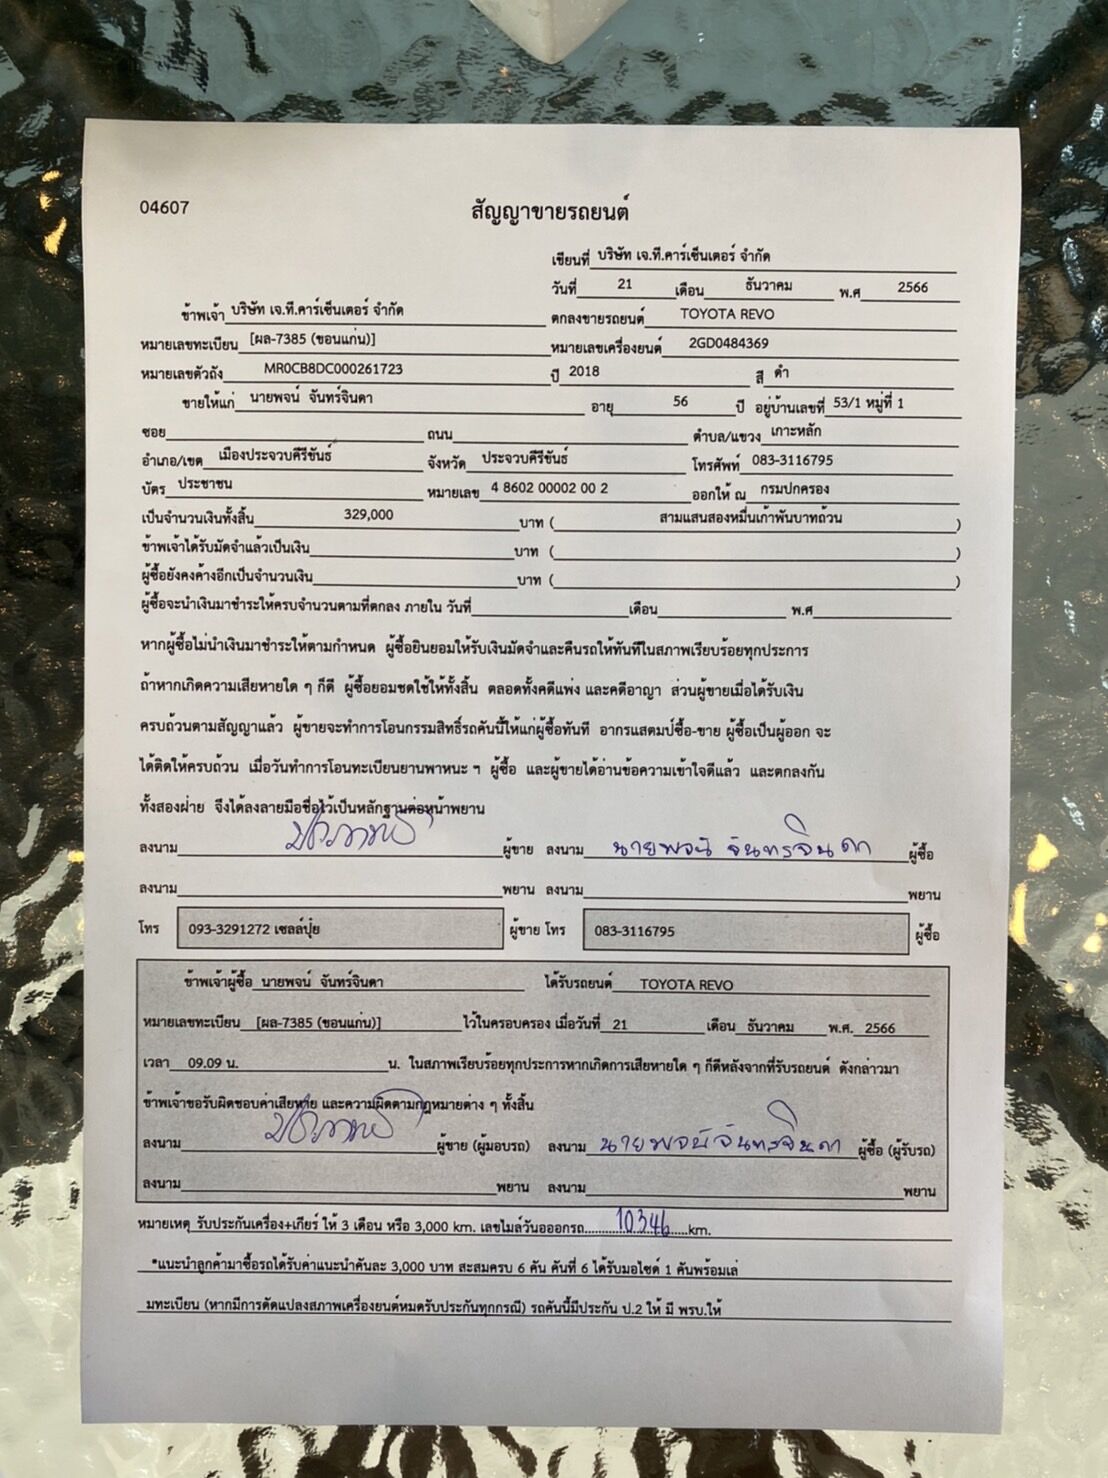 04607
สัญญาขายรถยนต์
เขียนที่ บริษัท เจ.ที.คาร์เซ็นเตอร์ จำกัด
วันที่ 21 เดือน ธันวาคม พ.ศ 2566
ข้าพเจ้า บริษัท เจ.ที.คาร์เซ็นเตอร์ จำกัด ตกลงขายรถยนต์ TOYOTA REVO
หมายเลขทะเบียน [ผล-7385 (ขอนแก่น)] หมายเลขเครื่องยนต์ 2GD0484369
หมายเลขตัวถัง MR0CB8DC000261723 ปี 2018 สี ดำ
ขายให้แก่ นายพจน์ จันทร์จินดา อายุ 56 ปี อยู่บ้านเลขที่ 53/1 หมู่ที่ 1
ซอย ถนน ตำบล/แขวง เกาะหลัก
อำเภอ/เขต เมืองประจวบคีรีขันธ์ จังหวัด ประจวบคีรีขันธ์ โทรศัพท์ 083-3116795
บัตร ประชาชน หมายเลข 4 8602 00002 00 2 ออกให้ ณ กรมปกครอง
เป็นจำนวนเงินทั้งสิ้น 329,000 บาท ( สามแสนสองหมื่นเก้าพันบาทถ้วน )
ข้าพเจ้าได้รับมัดจำแล้วเป็นเงิน บาท ( )
ผู้ซื้อยังคงค้างอีกเป็นจำนวนเงิน บาท ( )
ผู้ซื้อจะนำเงินมาชำระให้ครบจำนวนตามที่ตกลง ภายใน วันที่ เดือน พ.ศ
หากผู้ซื้อไม่นำเงินมาชำระให้ตามกำหนด ผู้ซื้อยินยอมให้รับเงินมัดจำและคืนรถให้ทันทีในสภาพเรียบร้อยทุกประการ
ถ้าหากเกิดความเสียหายใด ๆ ก็ดี ผู้ซื้อยอมชดใช้ให้ทั้งสิ้น ตลอดทั้งคดีแพ่ง และคดีอาญา ส่วนผู้ขายเมื่อได้รับเงิน
ครบถ้วนตามสัญญาแล้ว ผู้ขายจะทำการโอนกรรมสิทธิ์รถคันนี้ให้แก่ผู้ซื้อทันที อากรแสตมป์ซื้อ-ขาย ผู้ซื้อเป็นผู้ออก จะ
ได้ติดให้ครบถ้วน เมื่อวันทำการโอนทะเบียนยานพาหนะ ฯ ผู้ซื้อ และผู้ขายได้อ่านข้อความเข้าใจดีแล้ว และตกลงกัน
ทั้งสองฝ่าย จึงได้ลงลายมือชื่อไว้เป็นหลักฐานต่อหน้าพยาน
ลงนาม ผู้ขาย ลงนาม นายพจน์ จันทรจินดา ผู้ซื้อ
ลงนาม พยาน ลงนาม พยาน
โทร 093-3291272 เซลล์ปุ๋ย ผู้ขาย โทร 083-3116795 ผู้ซื้อ
ข้าพเจ้าผู้ซื้อ นายพจน์ จันทร์จินดา ได้รับรถยนต์ TOYOTA REVO
หมายเลขทะเบียน [ผล-7385 (ขอนแก่น)] ไว้ในครอบครอง เมื่อวันที่ 21 เดือน ธันวาคม พ.ศ. 2566
เวลา 09.09 น. น. ในสภาพเรียบร้อยทุกประการหากเกิดการเสียหายใด ๆ ก็ดีหลังจากที่รับรถยนต์ ดังกล่าวมา
ข้าพเจ้าขอรับผิดชอบค่าเสียหาย และความผิดตามกฎหมายต่าง ๆ ทั้งสิ้น
ลงนาม ผู้ขาย (ผู้มอบรถ) ลงนาม นายพจน์จันทรจินดา ผู้ซื้อ (ผู้รับรถ)
ลงนาม พยาน ลงนาม พยาน
หมายเหตุ รับประกันเครื่อง+เกียร์ ให้ 3 เดือน หรือ 3,000 km. เลขไมล์วันออกรถ..........10346......km.
*แนะนำลูกค้ามาซื้อรถได้รับค่าแนะนำคันละ 3,000 บาท สะสมครบ 6 คัน คันที่ 6 ได้รับมอไซด์ 1 คันพร้อมเล่
มทะเบียน (หากมีการดัดแปลงสภาพเครื่องยนต์หมดรับประกันทุกกรณี) รถคันนี้มีประกัน ป.2 ให้ มี พรบ.ให้